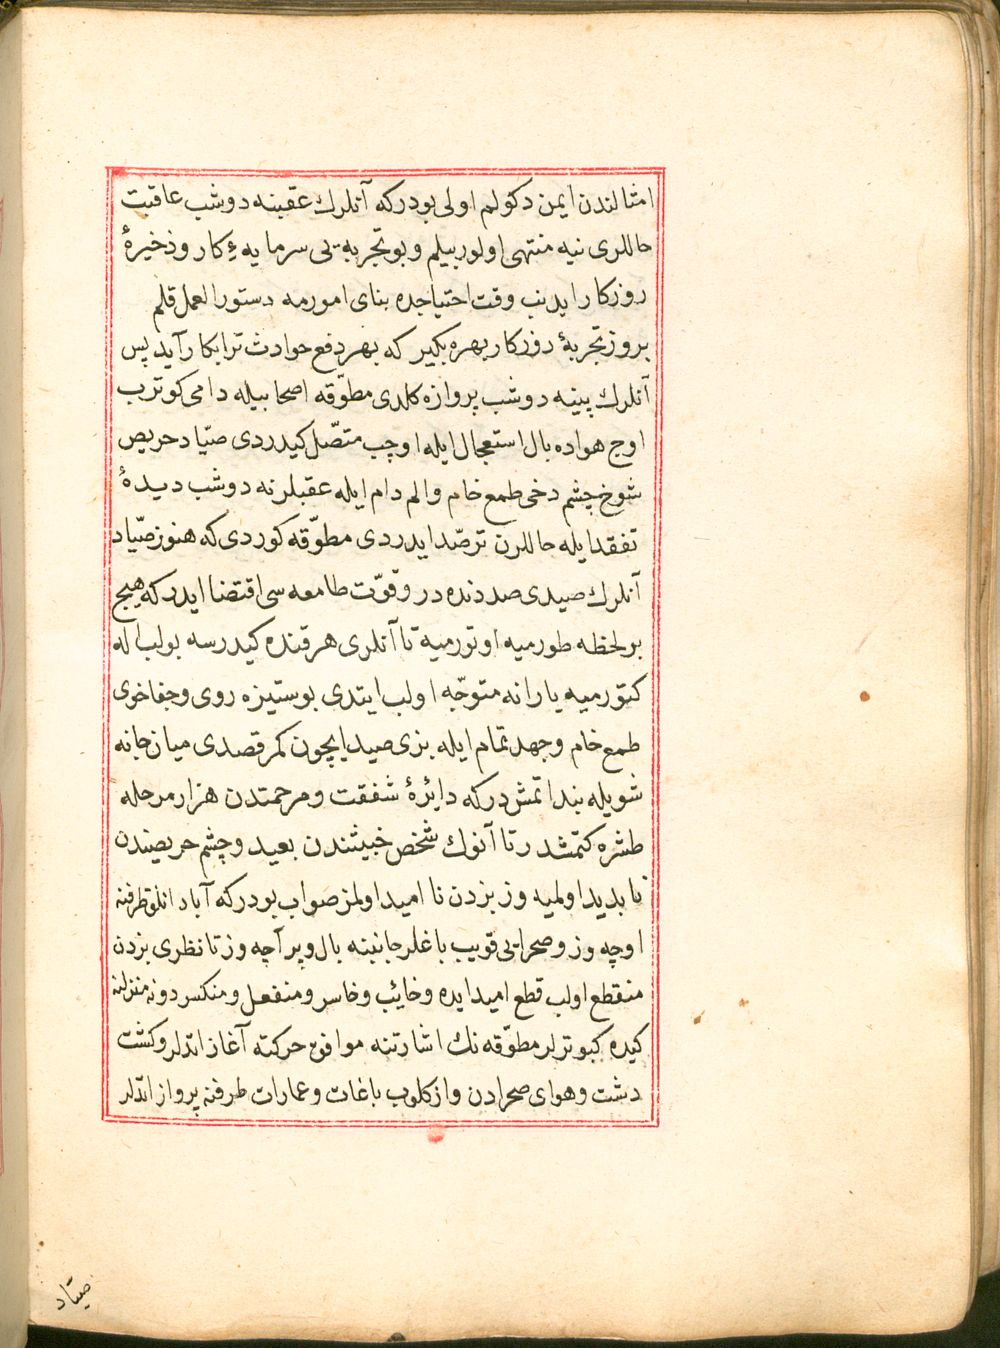 امثالندن ايمن دكولم اولى بودركه آنلرك عقبنه دوشب عاقبت
حاللرى نيه منتهى اولور بيلم و بو تجربه يى سرمايهٔ كار و ذخيرهٔ
روزكار ايدنب وقت احتياجده بناى امورمه دستور العمل قلم
بروز تجربهٔ روزكار بهره بكير كه بهر دفع حوادث ترا بكار آيد پس
آنلرك پينه دوشب پروازه كلدى مطوّقه اصحابيله دامى كوترب
اوج هواده بال استعجال ايله اوچب متصّل كيدردى صيّاد حريص
شوخ چشم دخى طمع خام و الم دام ايله عقبلرنه دوشب ديدهٔ
تفقد ايله حاللرن ترصّد ايدردى مطوّقه كوردى كه هنوز صيّاد
آنلرك صيدى صددنده در و قوّت طامعه سى اقتضا ايدر كه هيچ
بر لحظه طورميه اوتورميه تا آنلرى هر قنده كيدرسه بولب اله
كتورميه يارانه متوجّه اولب ايتدى بو ستيزه روى و جفا خوى
طمع خام و جهد تمام ايله بزى صيد ايچون كمر قصدى ميان جانه
شويله بند اتمش در كه دايرهٔ شفقت و مرحمتدن هزار مرحله
طشره كتمشدر تا آنوك شخص خبيثندن بعيد و چشم حريصندن
نابديد اولميه وز بزدن نا اميد اولمز صواب بودر كه آبادانلق طرفنه
اوچه وز و صحرايى قويب باغلر جانبنه بال و پر آچه وز تا نظرى بزدن
منقطع اولب قطع اميد ايده و خايب و خاسر و منفعل و منكسر دونه منزلنه
كيده كبوترلر مطوّقه نك اشارتنه موافق حركته آغاز اتدلر و كشت
دشت و هواى صحرادن واز كلوب باغات و عمارات طرفنه پرواز اتدلر
صيّاد